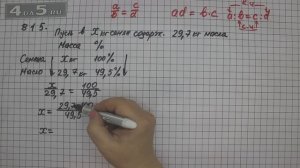 4DA5.ru
a/b = c/d ad = b·c a:b=c:d
815. Пусть в x кг семян содерж. 29,7 кг масла
Масса %
Семена x кг 100%
Масло 29,7 кг 49,5%
x/29,7 = 100/49,5
x = 29,7·100/49,5
x =